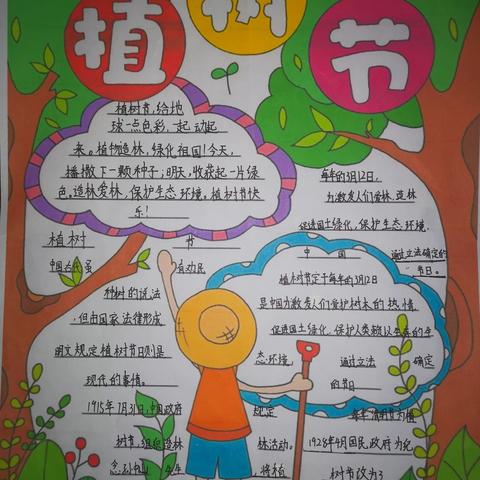 植树节
植树节,给地
球一点色彩,起动起
来。植物造林,绿化祖国!今天,
播撒下一颗种子;明天,收获起一片绿
色。造林爱林,保护生态环境。植树节快
乐!
每年的3月12日,
为激发人们爱林、造林
促进国土绿化,保护生态环境,
中国 通过立法确定的
节日。
植树节
中国古代虽有动民
种树的说法
,但由国家法律形成
明文规定植树节日则是
现代的事情。
1915年7月31日,中国政府规定
树节,组织造林
林活动。1928年4月国民政府为纪
念孙中山
,将植
树节改为3
植树节定于每年的3月12日
是中国为激发人们爱护树木的热情
促进国土绿化,保护人类赖以生存的生
态环境, 通过立法 确定
的节日
每年清明节为植